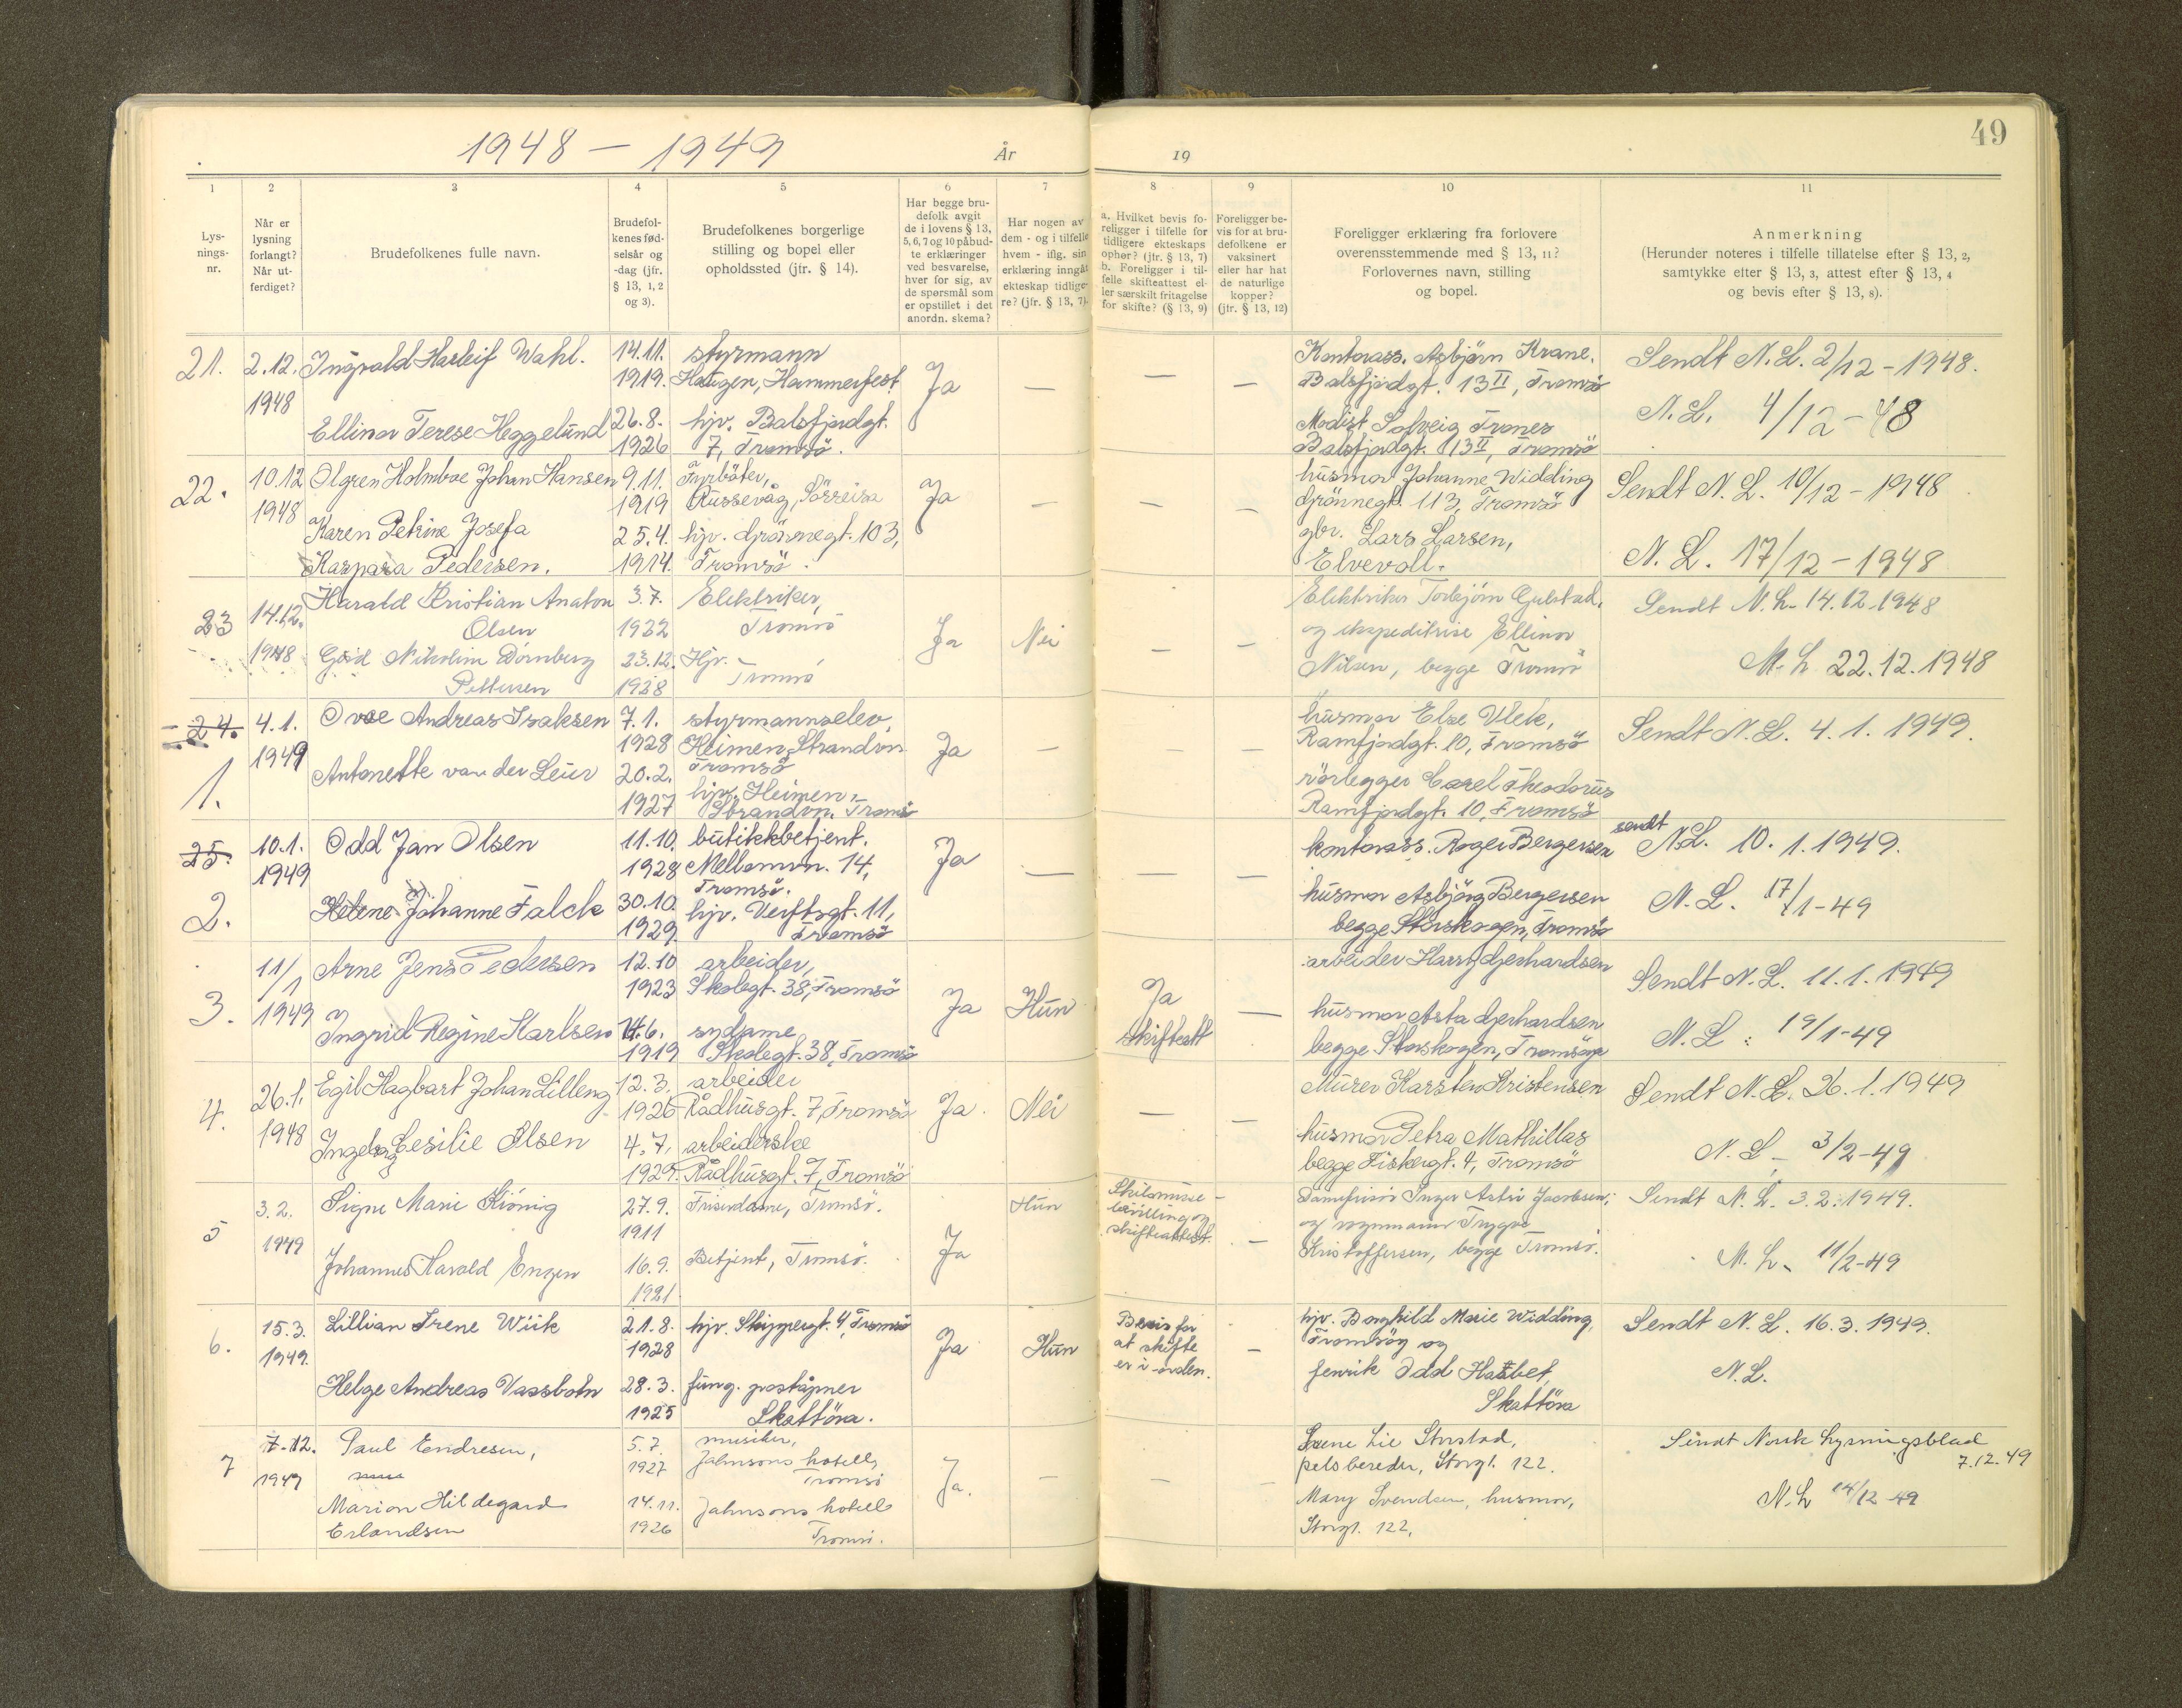 1948 — 1949
År
19
49
1
2
3
4
5
6
7
8
9
10
11
Lys-
nings-
nr.
Når er
lysning
forlangt?
Når ut-
ferdiget?
Brudefolkenes fulle navn.
Brudefol-
kenes fød-
selsår og
-dag (jfr.
§ 13, 1, 2
og 3).
Brudefolkenes borgerlige
stilling og bopel eller
opholdssted (jfr. § 14).
Har begge bru-
defolk avgit
de i lovens § 13,
5, 6, 7 og 10 påbud-
te erklæringer
ved besvarelse,
hver for sig, av
de spørsmål som
er opstillet i det
anordn. skema?
Har nogen av
dem - og i tilfelle
hvem - iflg. sin
erklæring inngåt
ekteskap tidlige-
re? (jfr. § 13, 7).
a. Hvilket bevis fo-
religger i tilfelle for
tidligere ekteskaps
ophør? (jfr. § 13, 7)
b. Foreligger i til-
felle skifteattest el-
ler særskilt fritagelse
for skifte? (§ 13, 9)
Foreligger be-
vis for at bru-
defolkene er
vaksinert
eller har hat
de naturlige
kopper?
(jfr. § 13, 12)
Foreligger erklæring fra forlovere
overensstemmende med § 13, 11?
Forlovernes navn, stilling
og bopel.
Anmerkning
(Herunder noteres i tilfelle tillatelse efter § 13, 2,
samtykke efter § 13, 3, attest efter § 13, 4
og bevis efter § 13, 8).
21.
2.12.
1948
Ingvald Harleif Wahl.
Ellinor Terese Heggelund
14.11.
1919.
26.8.
1926
styrmann
Haugen, Hammerfest
hjv. Balsfjordgt.
7, Tromsö.
Ja
—
—
—
Kontorass. Asbjørn Krane,
Balsfjordgt. 13 II, Tromsö
Modist Solveig Tranes
Balsfjordgt. 13 II, Tromsö
Sendt N.L. 2/12 - 1948.
N.L. 4/12 - 48
22.
10.12
1948
Olgren Holmboe Johan Hansen
Karen Petrine Josefa
Kaspara Pedersen.
9.11.
1919
25.4.
1914.
Fyrböter,
Russevåg, Sörreisa
hjv. Grönnegt. 103,
Tromsö.
Ja
—
—
—
husmor Johanne Widding
Grönnegt. 113, Tromsö
gbr. Lars Larsen,
Elvevoll.
Sendt N.L. 10/12 - 1948
N.L. 17/12 - 1948
23
14.12.
1948
Harald Kristian Anaton
Olsen
Nikoline Dörnberg
Pettersen
3.7.
1922
23.12.
1928
Elektriker,
Tromsö
Hjv.
Tromsö
Ja
Nei
—
—
Elektriker Torbjörn Gulstad,
og ekspeditrise Ellinor
Nilsen, begge Tromsö
Sendt N.L. 14.12.1948
N.L. 22.12.1948
24.
1.
4.1.
1949
Ovoe Andreas Isaksen
Antonette van der Leur
7.1.
1928
20.2.
1927
styrmannselev,
Heimen, Strandvn
Tromsö
hjv. Heimen,
Strandvn. Tromsö
Ja
—
—
—
husmor Else Vlek,
Ramfjordgt. 10, Tromsö
rörlegger Carel Theodorus
Ramfjordgt. 10, Tromsö
Sendt N.L. 4.1.1949.
25.
2.
10.1.
1949
Odd Jan Olsen
Helene Johanne Falck
11.10.
1928
30.10.
1929.
butikkbetjent.
Mellomvn. 14,
Tromsö.
hjv. Verftsgt. 11,
Tromsö
Ja
—
—
—
kontorass. Roger Bergersen
husmor Asbjörg Bergersen
begge Storskogen, Tromsö
sendt
N.L. 10.1.1949.
N.L. 17/1-49
3.
11/1
1949
Arne Jens Pedersen
Ingrid Regine Karlsen
12.10
1923
14.6.
1919
arbeider,
Skolegt. 38, Tromsö
sydame
Skolegt. 38, Tromsö
Ja
Hun
Ja
skifteatt
—
arbeider Harry Gerhardsen
husmor Asta Gerhardsen
begge Storskogen, Tromsöya
Sendt N.L. 11.1.1949
N.L: 19/1-49
4.
26.1.
1948
Egil Hagbart Johan Lilleng
Ingeborg Cesilie Olsen
12.3.
1926
4.7.
1929.
arbeider
Rådhusgt. 7, Tromsö
arbeiderske
Rådhusgt. 7, Tromsö
Ja.
Nei
—
—
Murer Karsten Kristensen
husmor Petra Mathillas
begge Fiskergt. 4, Tromsö
Sendt N.L. 26.1.1949
N.L - 3/2-49
5
3.2.
1949
Signe Marie König
Johannes Harald Enzen
27.9.
1911
16.9.
1921
Friserdame, Tromsö.
Betjent, Tromsö.
Ja
Hun
Skilsmisse-
bevilling og
skifteattest.
—
Damefrisör Inger Astri Jacobsen,
og vognmann Trygve
Kristoffersen, begge Tromsö.
Sendt N.L. 3.2.1949.
N.L - 11/2-49
6.
15.3.
1949.
Lillian Irene Wiik
Helge Andreas Vassbotn
21.8.
1928
28.3.
1925
hjv. Skippergt. 4, Tromsö
fung. poståpner
Skattöra.
Ja
Hun
Bevis for
at skifte
er i orden.
—
hjv. Borghild Marie Widding,
Tromsöy og
fenrik Odd Hatbet,
Skattöra
Sendt N.L. 16.3.1949.
N.L.
7
7.12.
1949
Paul Endresen,
Marion Hildegard
Erlandsen
5.7.
1927
14.11.
1926
musiker,
Jahnsons hotell,
Tromsö
Jahnsons hotell
Tromsö.
Ja.
—
—
—
Lie Storstad,
pelsbereder, Storgt. 122.
Mary Svendsen, husmor,
Storgt. 122,
Sendt Norsk Lysningsblad
7.12.49
N.L 14/12-49